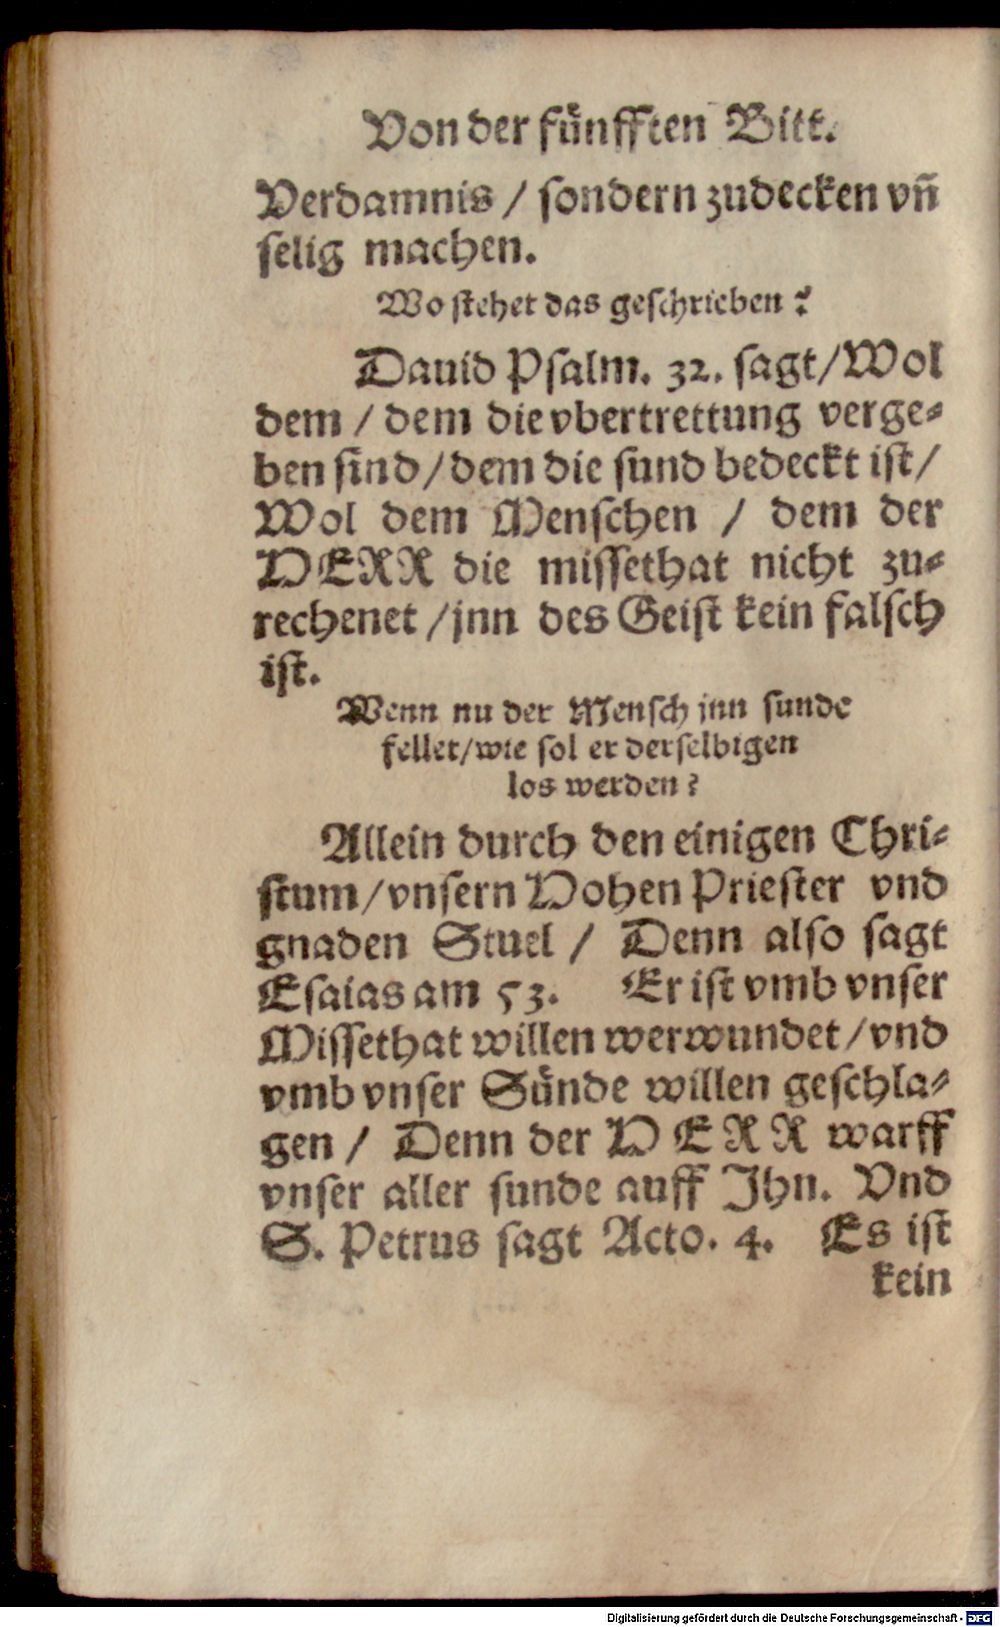 Von der fünfften Bitt.
Verdamnis / sondern zudecken vñ
selig machen.
Wo stehet das geschrieben?
Dauid Psalm. 32. sagt/Wol
dem / dem die vbertrettung verge-
ben sind/dem die sund bedeckt ist/
Wol dem Menschen / dem der
HERR die missethat nicht zu-
rechenet /jnn des Geist kein falsch
ist.
Wenn nu der Mensch jnn sunde
fellet/wie sol er derselbigen
los werden?
Allein durch den einigen Chri-
stum/vnsern Hohen Priester vnd
gnaden Stuel / Denn also sagt
Esaias am 53. Er ist vmb vnser
Missethat willen werwundet/vnd
vmb vnser Sünde willen geschla-
gen / Denn der HERR warff
vnser aller sunde auff Jhn. Vnd
S. Petrus sagt Acto. 4. Es ist
kein
Digitalisierung gefördert durch die Deutsche Forschungsgemeinschaft - DFG